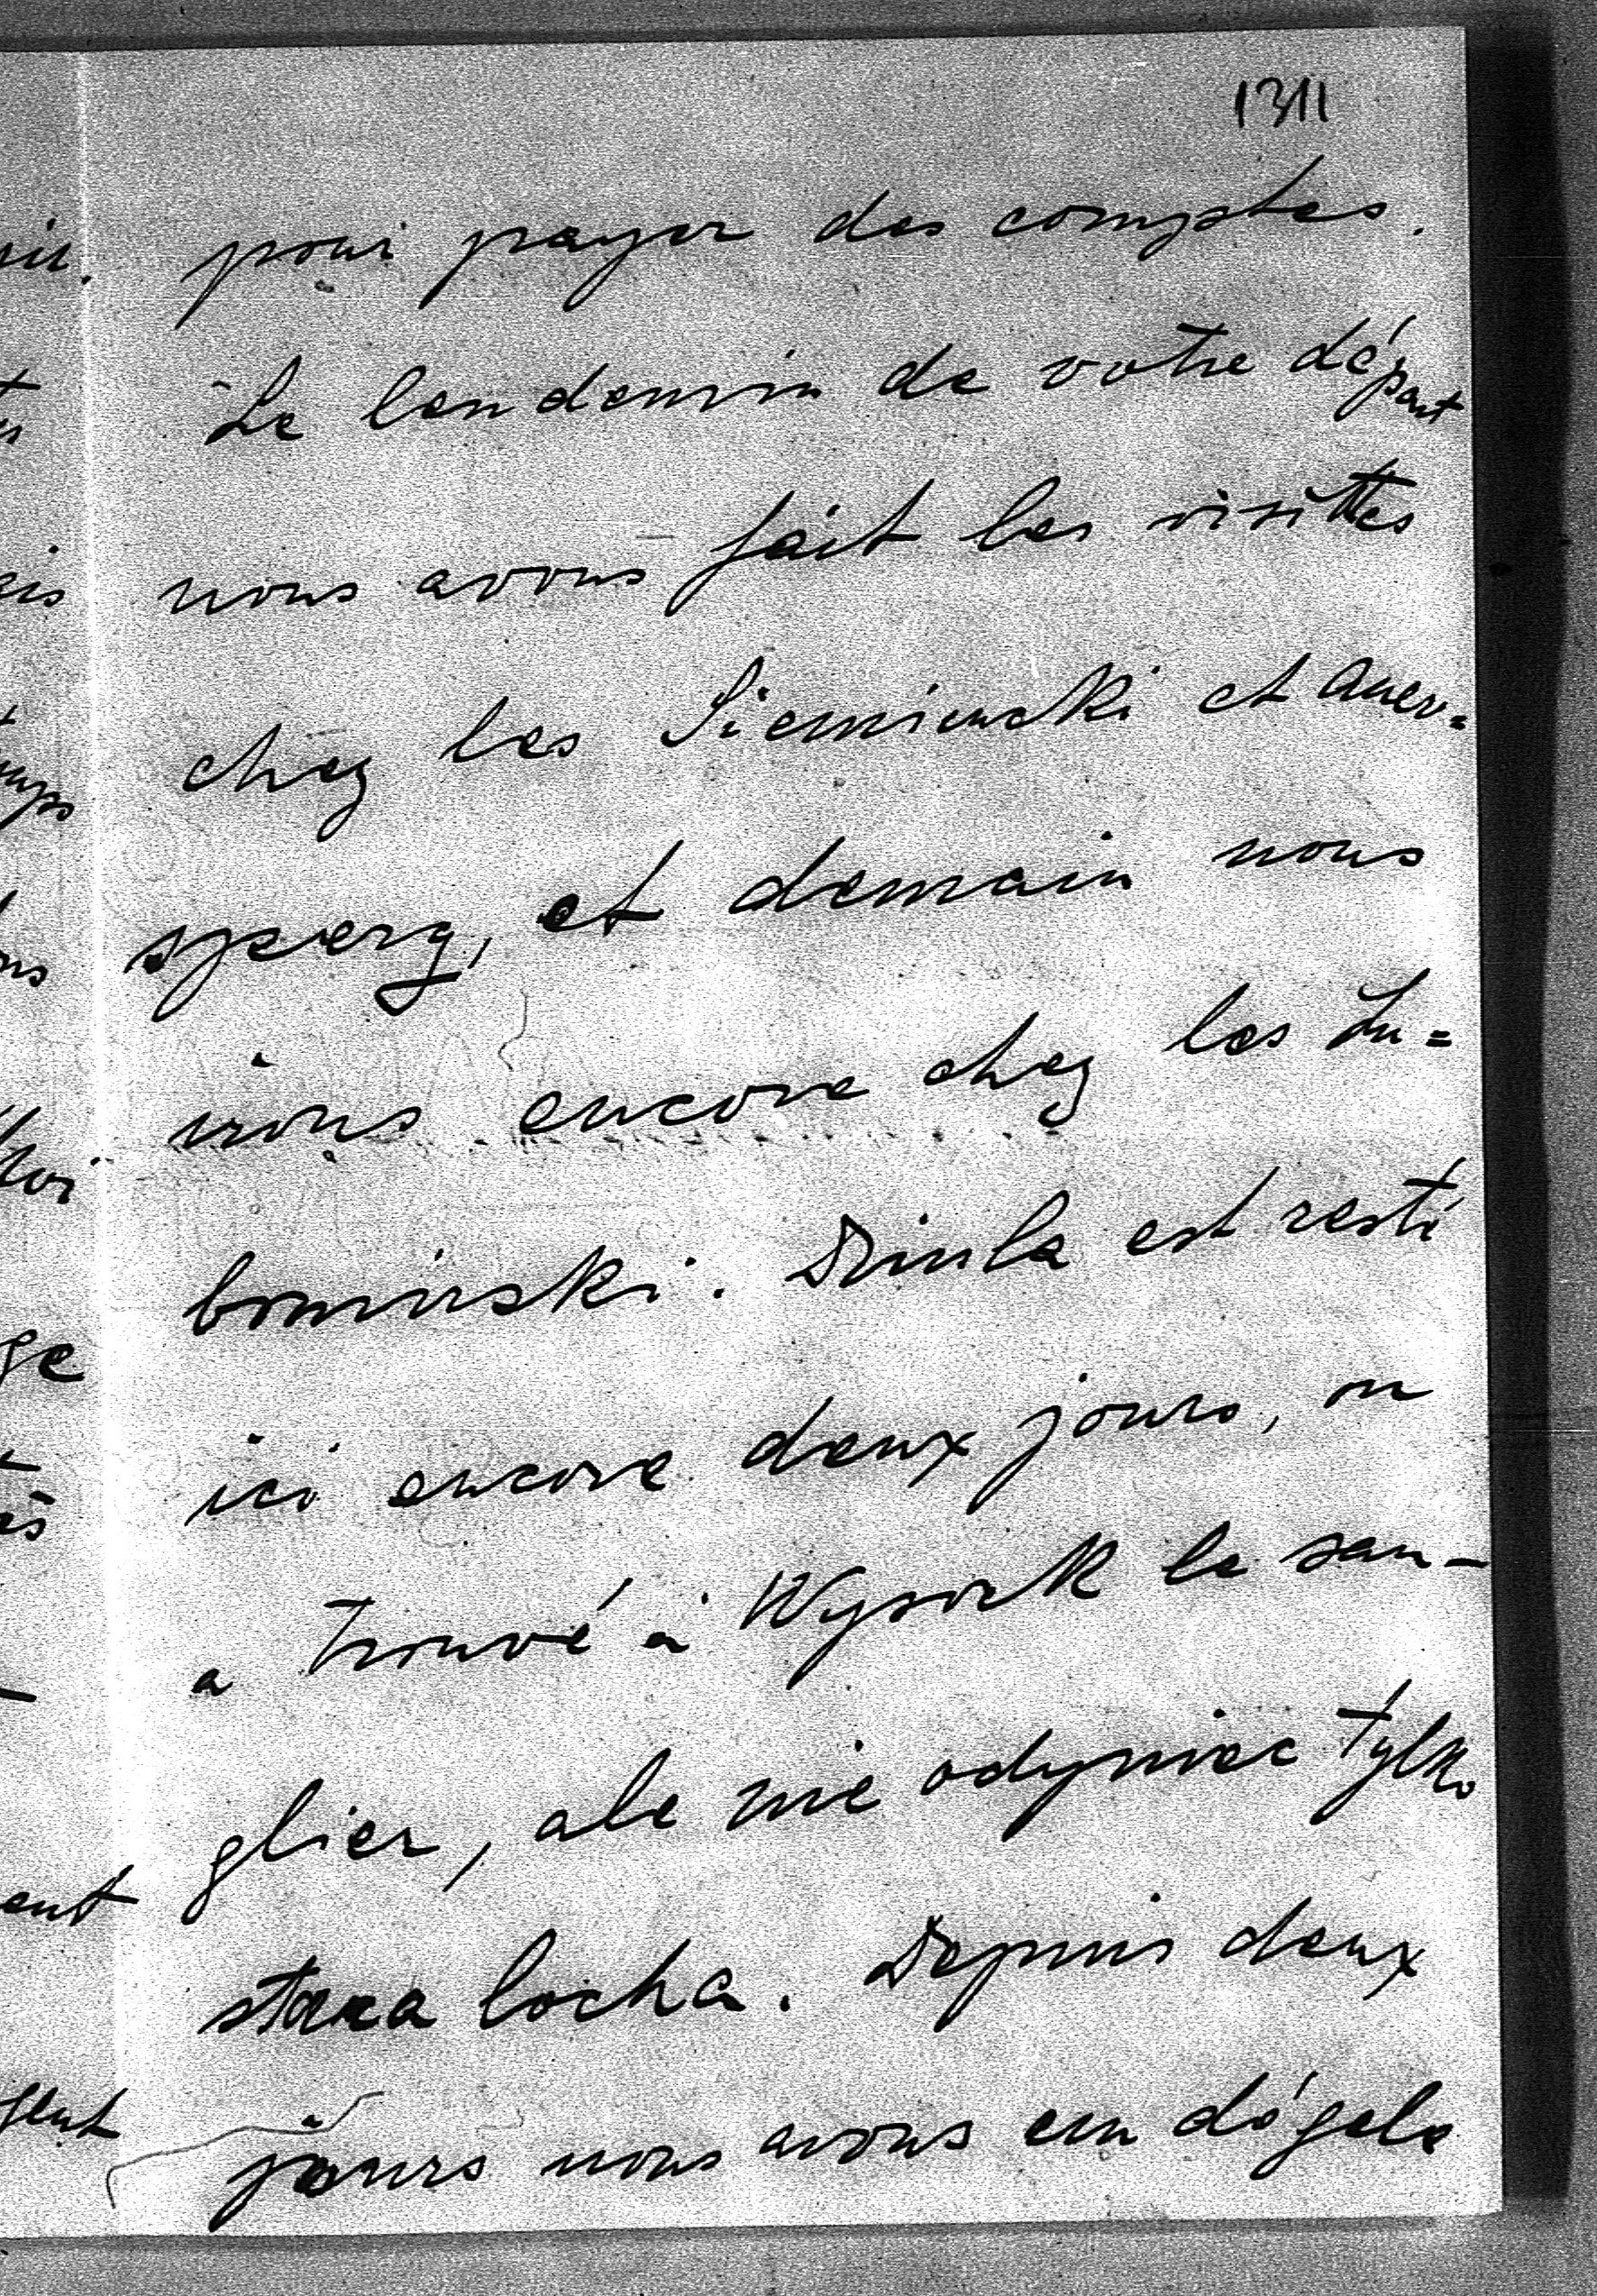 1311
pour payer des comptes.
Le lendemin de votre départ
nous avons fait les visittes
chez les Siemieński et Auer=
sperg, et demain nous
irons encore chez les Lu=
bomirski. est resté
ici encore deux jours, on
a trouvé à Wysock le san-
glier, ale nie odyniec tylko
stara locha. Depuis deux
jours nous avons eu dégele